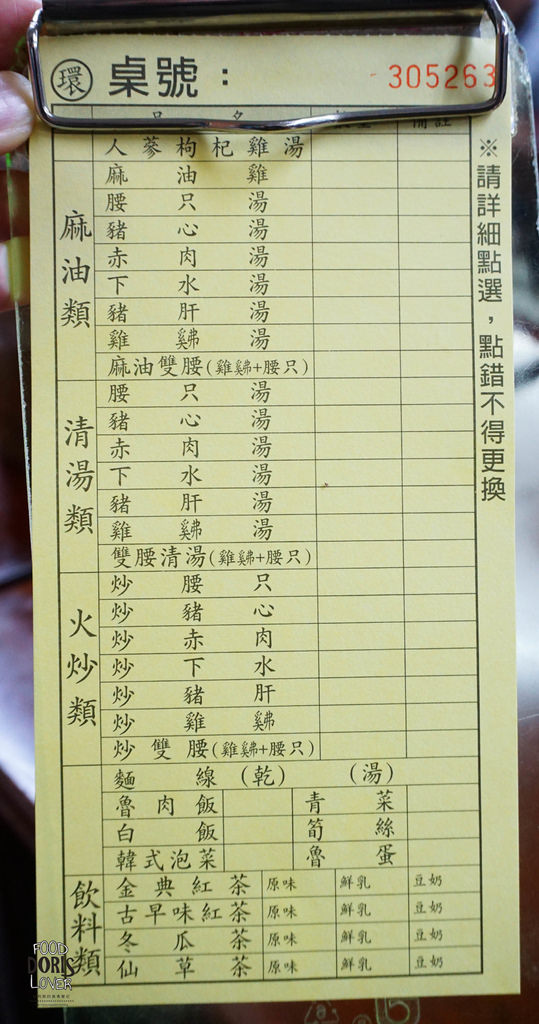 環 桌號： 305263
品名
人蔘枸杞雞湯
麻油類
麻油雞
腰只湯
豬心湯
赤肉湯
下水湯
豬肝湯
雞鵤湯
麻油雙腰(雞鵤+腰只)
清湯類
腰只湯
豬心湯
赤肉湯
下水湯
豬肝湯
雞鵤湯
雙腰清湯(雞鵤+腰只)
火炒類
炒腰只
炒豬心
炒赤肉
炒下水
炒豬肝
炒雞鵤
炒雙腰(雞鵤+腰只)
麵線 (乾) (湯)
魯肉飯 青菜
白飯 筍絲
韓式泡菜 魯蛋
飲料類
金典紅茶 原味 鮮乳 豆奶
古早味紅茶 原味 鮮乳 豆奶
冬瓜茶 原味 鮮乳 豆奶
仙草茶 原味 鮮乳 豆奶
※請詳細點選，點錯不得更換
FOOD
DORIS
LOVER